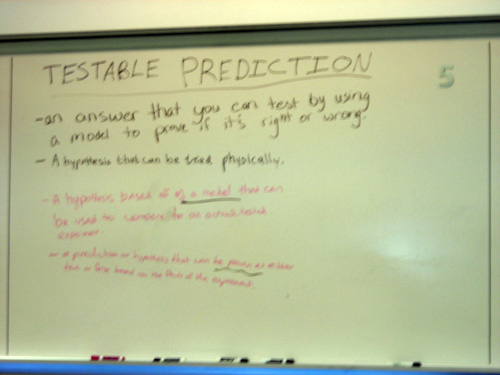 TESTABLE PREDICTION
5
-an answer that you can test by using
a model to prove if it's right or wrong.
- A hypothesis that can be tried physically.
- A hypothesis based off of a model that can
be used to compare to an actual tested
- a prediction or hypothesis that can be proven as either
true or false based on the facts of the experiment.